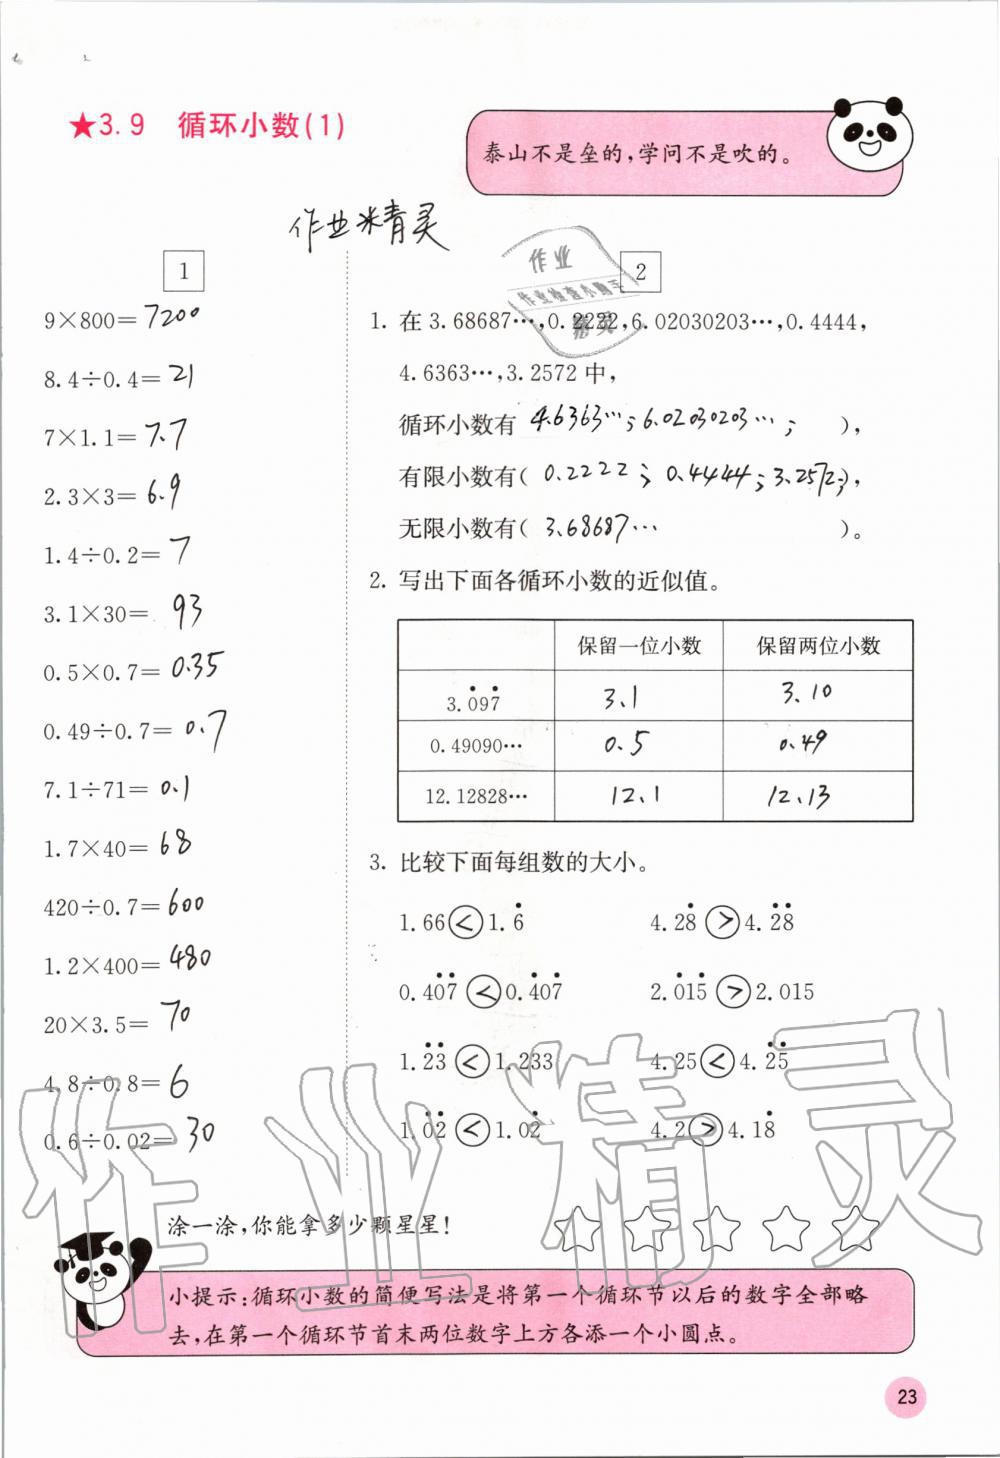 ★3.9 循环小数(1)
泰山不是垒的,学问不是吹的。
作业精灵
作业
作业检查小助手
精灵
1
9×800=7200
8.4÷0.4=21
7×1.1=7.7
2.3×3=6.9
1.4÷0.2=7
3.1×30=93
0.5×0.7=0.35
0.49÷0.7=0.7
7.1÷71=0.1
1.7×40=68
420÷0.7=600
1.2×400=480
20×3.5=70
4.8÷0.8=6
0.6÷0.02=30
2
1. 在3.68687…,0.2222,6.02030203…,0.4444,
4.6363…,3.2572中,
循环小数有 4.6363…;6.02030203…; ),
有限小数有( 0.2222; 0.4444;3.2572;),
无限小数有( 3.68687… )。
2. 写出下面各循环小数的近似值。
保留一位小数 保留两位小数
3.0̇97̇ 3.1 3.10
0.49090… 0.5 0.49
12.12828… 12.1 12.13
3. 比较下面每组数的大小。
1.66<1.6̇ 4.28̇>4.2̇8̇
0.40̇7̇<0.4̇07̇ 2.0̇15̇>2.015
1.2̇3̇<1.233 4.25<4.2̇5̇
1.0̇2̇<1.02̇ 4.2>4.18̇
涂一涂,你能拿多少颗星星!
小提示:循环小数的简便写法是将第一个循环节以后的数字全部略
去,在第一个循环节首末两位数字上方各添一个小圆点。
作业精灵
23